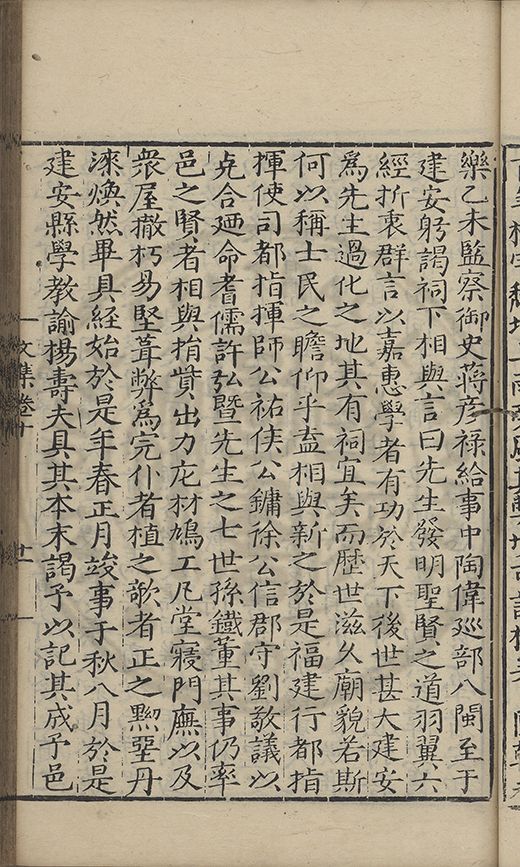 樂乙未監察御史蔣彦祿給事中陶偉廵部八閩至于
建安躬謁祠下相與言曰先生發明聖賢之道羽翼六
經折衷群言以嘉惠學者有功於天下後世甚大建安
爲先生過化之地其有祠宜矣而歷世滋久廟貌若斯
何以稱士民之瞻仰乎盍相與新之於是福建行都指
揮使司都指揮師公祐侯公鏞徐公信郡守劉敬議以
克合廼命耆儒許弘暨先生之七世孫鐵董其事仍率
邑之賢者相與捐貲出力庀材鳩工凡堂寢門廡以及
衆屋撤朽易堅葺弊爲完仆者植之欹者正之黝堊丹
漆煥然畢具經始於是年春正月竣事于秋八月於是
建安縣學教諭楊壽夫具其本末謁予以記其成予邑
文集卷十
廿一